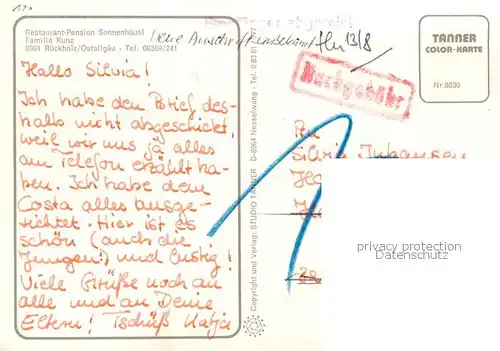 Restaurant-Pension Sonnenhäusl
Familie Kunz
8961 Rückholz/Ostallgäu - Tel. 08369/241
Hallo Silvia!
Ich habe den Brief des-
halb nicht abgeschickt,
weil wir uns ja alles
am Telefon erzählt ha-
ben. Ich habe dem
Costa alles ausge-
richtet. Hier ist es
schön (auch die
Jungen!) und lustig!
Viele Grüße noch an
alle und an Deine
Eltern! Tschüß Katja
Neue Anschrift unbekannt
13/8
Copyright und Verlag: STUDIO TANNER D-8964 Nesselwang - Tel. 08361/
TANNER
COLOR-KARTE
Nr.8030
Nachgebühr
An
Silvia
privacy protection